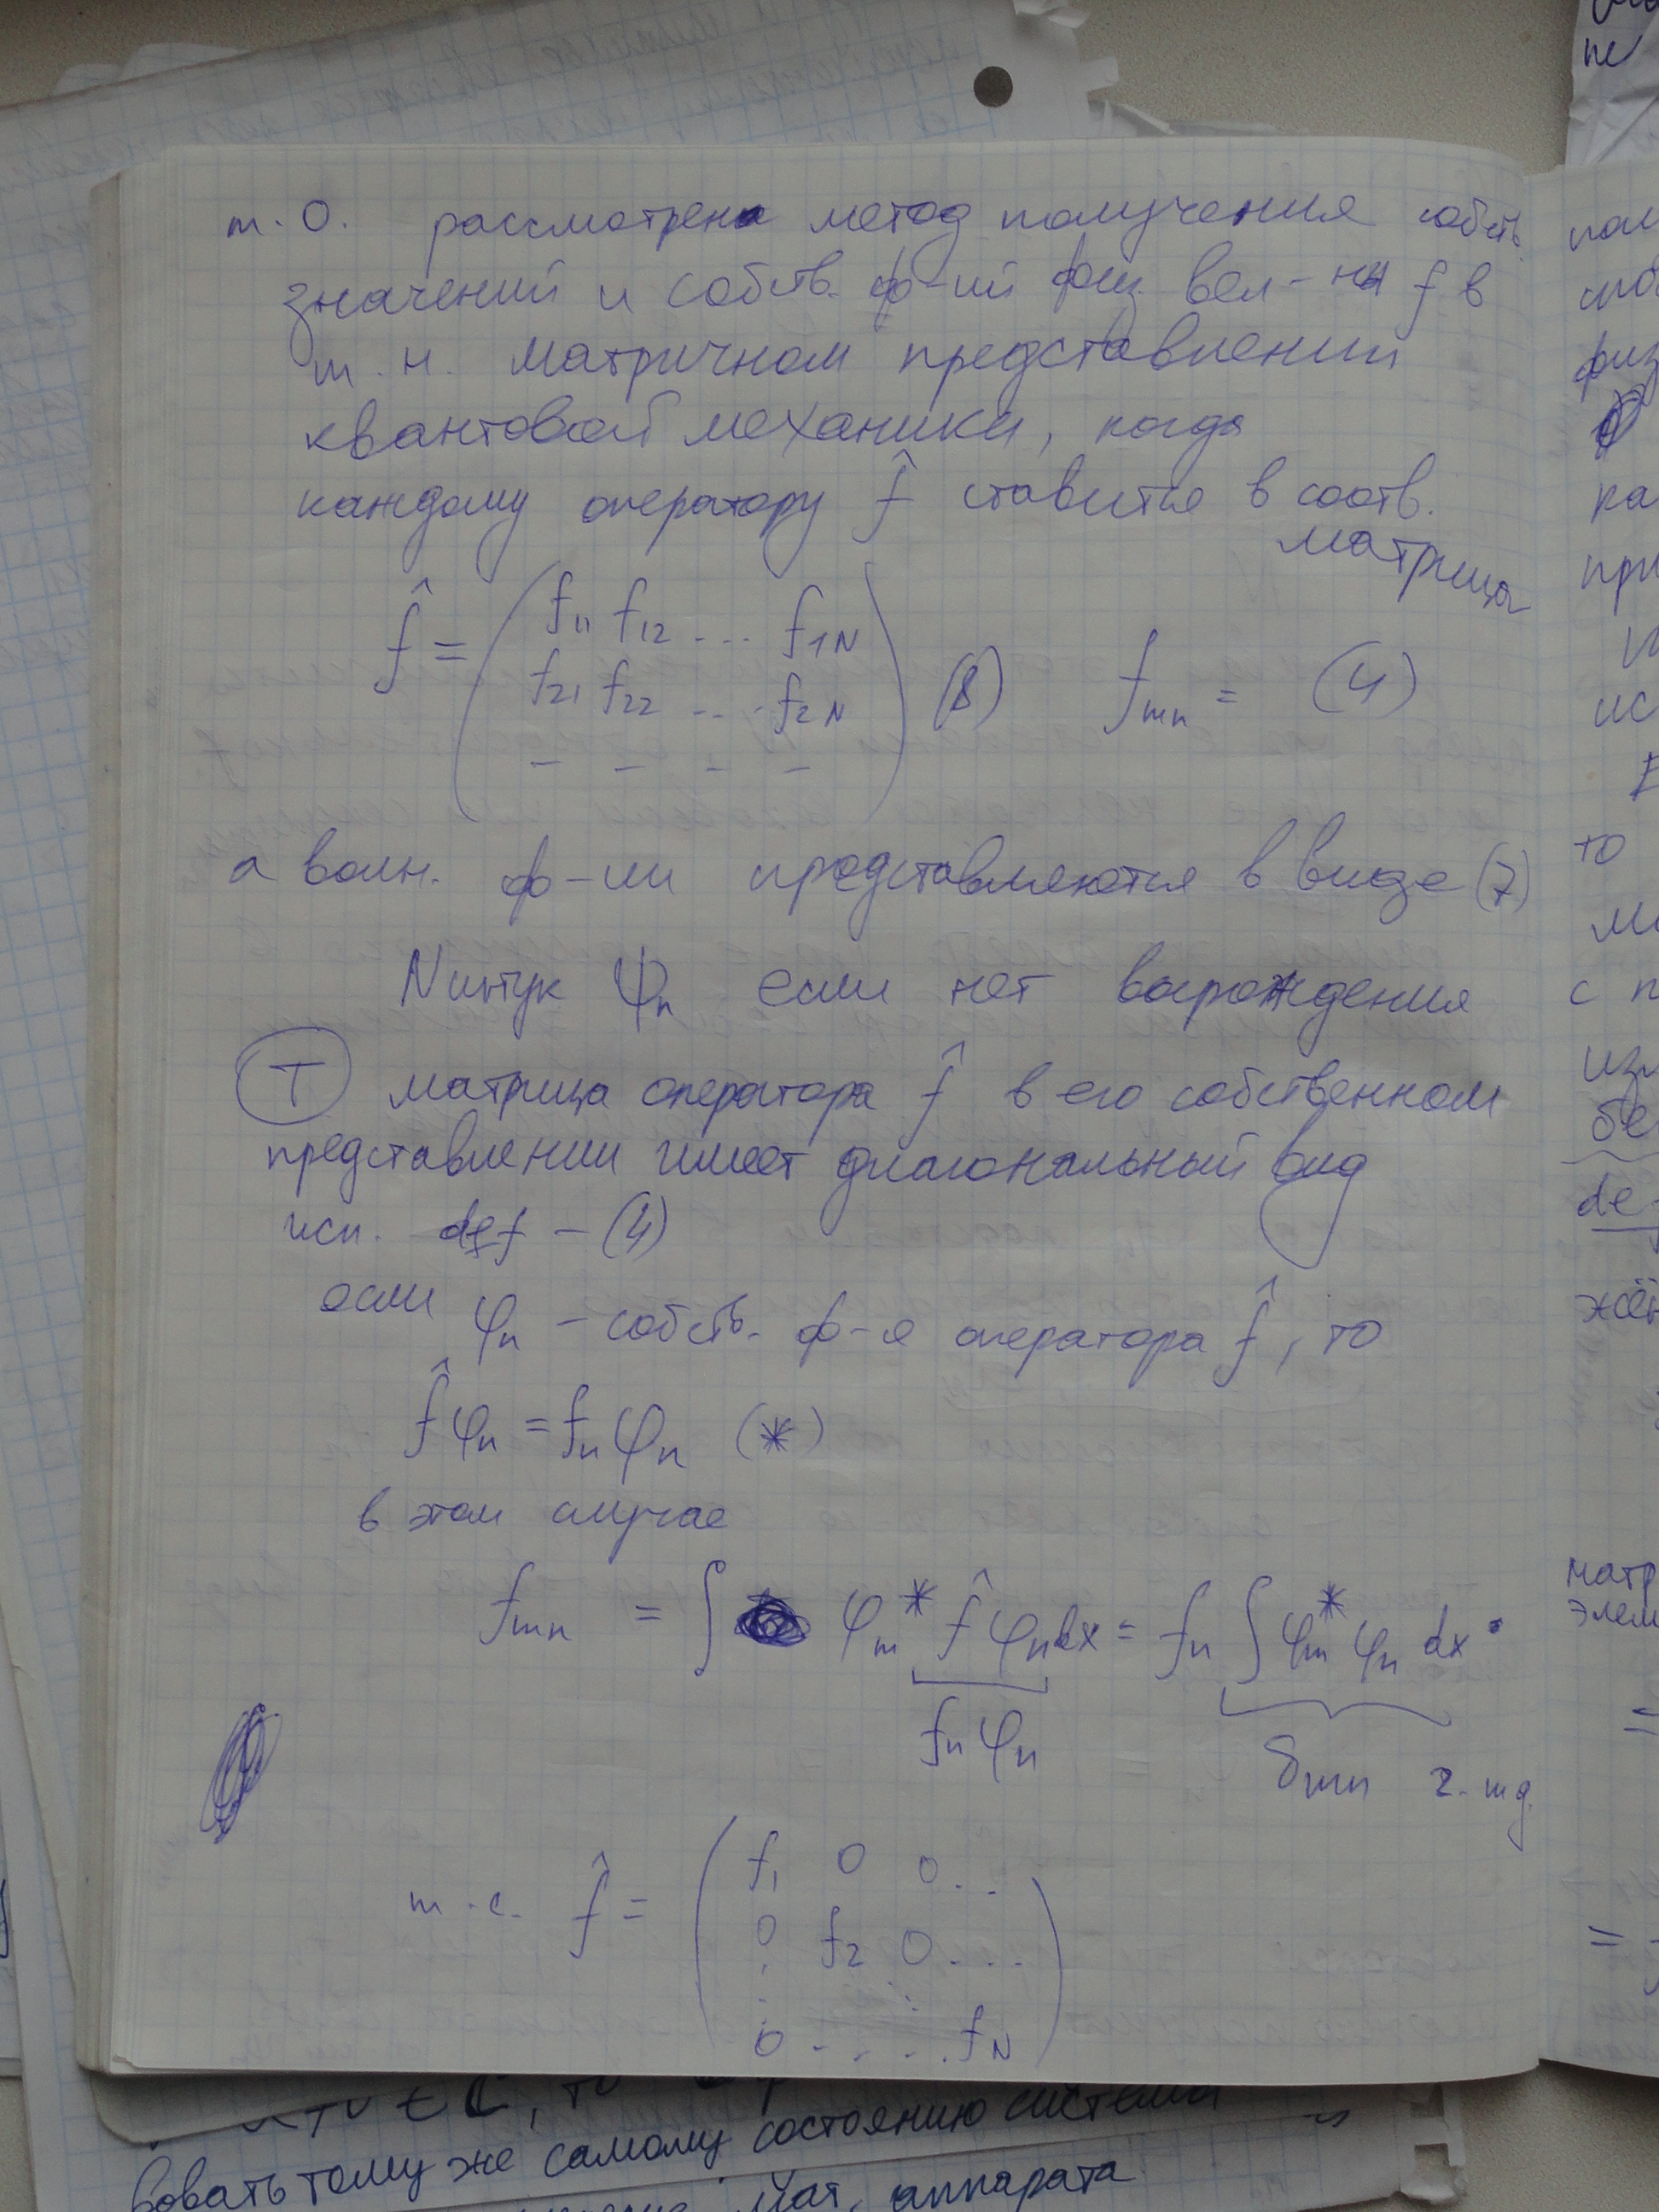 т.о. рассмотрен метод получения собств.
значений и собств. ф-ий физ. вел-ны f в
т.н. матричном представлении
квантовой механики, когда
каждому оператору f̂ ставится в соотв.
матрица
f̂ = ( f₁₁ f₁₂ ... f₁N
f₂₁ f₂₂ ... f₂N
– – – – ) (8) fmn = (4)
а волн. ф-ии представляются в виде (7)
N штук ψn если нет вырождения
Т матрица оператора f̂ в его собственном
представлении имеет диагональный вид
исп. def – (4)
если φn – собств. ф-я оператора f̂, то
f̂ φn = fn φn (*)
в этом случае
fmn = ∫ φm* f̂ φn dx = fn ∫ φm* φn dx
fn φn δmn ч.тд.
т.е. f̂ = ( f₁ 0 0 ..
0 f₂ 0 ...
0 ..... fN )
пол
физ
ка
при
ис
то
с п
из
бе
def
жён
матр
элем
=
=
, то
вовать тому же самому состоянию системы
мат. аппарата